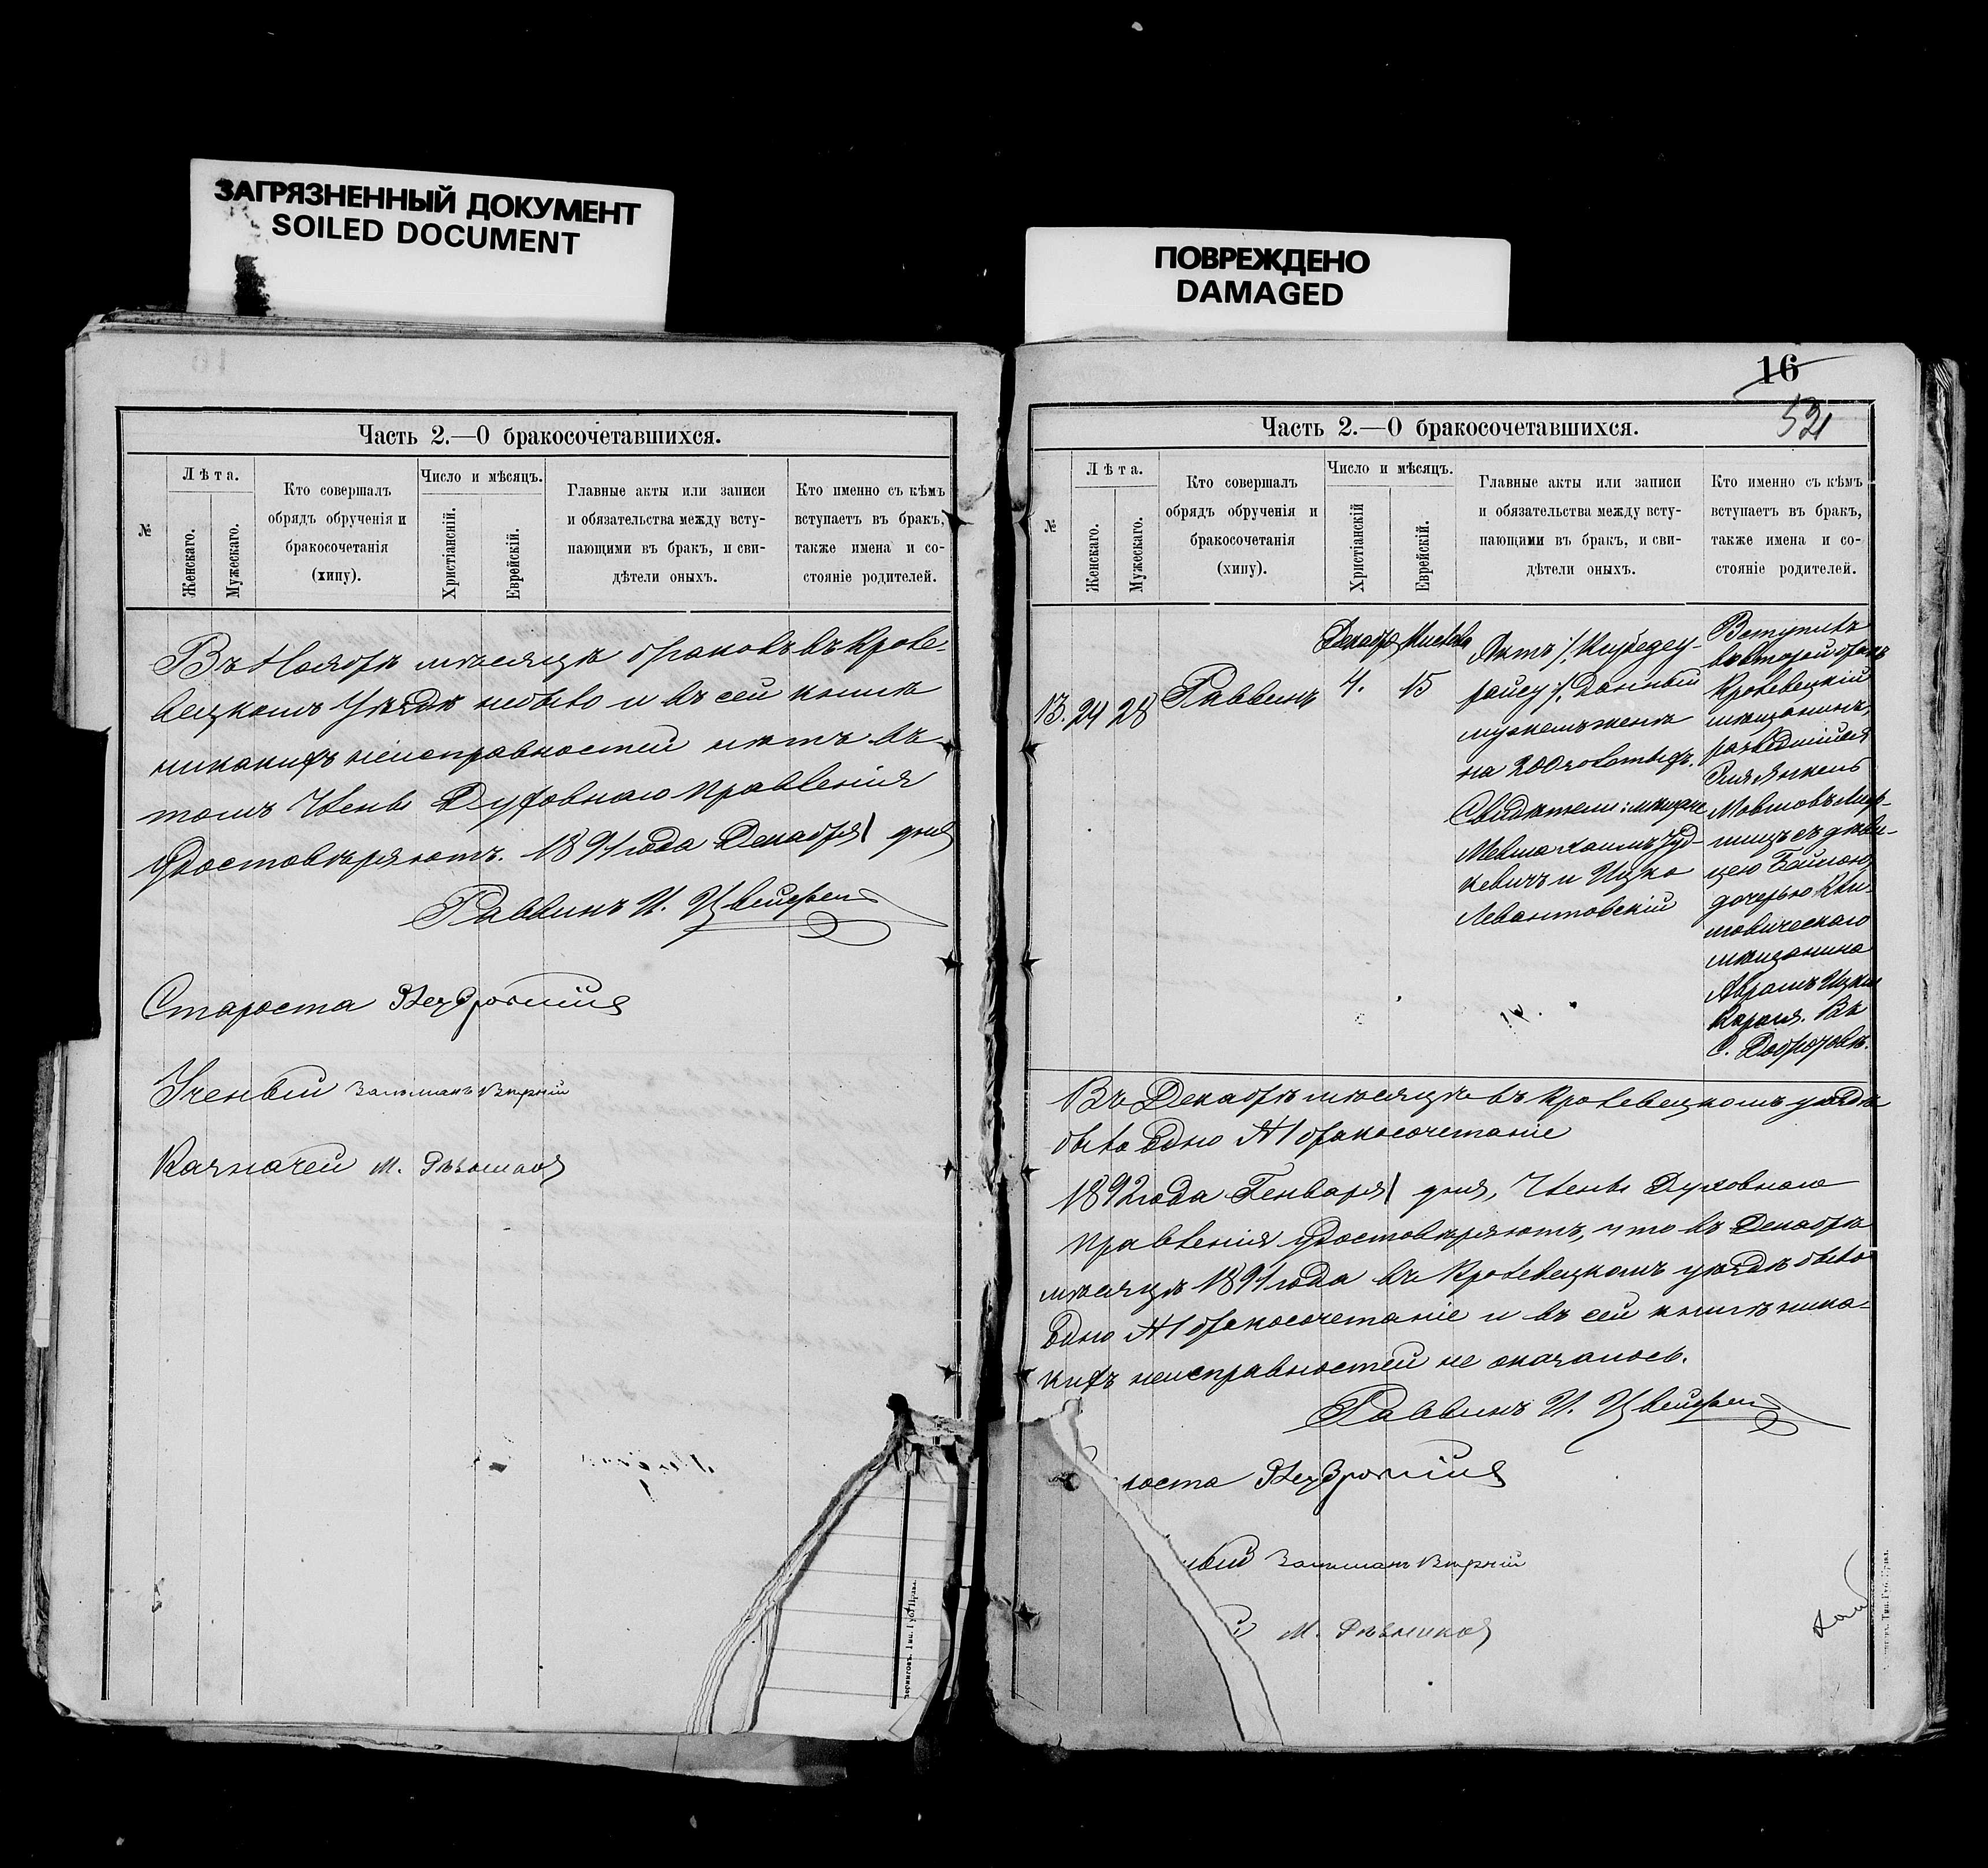 ЗАГРЯЗНЕННЫЙ ДОКУМЕНТ
SOILED DOCUMENT
Часть 2.—О бракосочетавшихся.
№
Лѣта.
Женскаго.
Мужескаго.
Кто совершалъ
обрядъ обрученія и
бракосочетанія
(хипу).
Число и мѣсяцъ.
Христіанскій.
Еврейскій.
Главные акты или записи
и обязательства между всту-
пающими въ бракъ, и сви-
дѣтели оныхъ.
Кто именно съ кѣмъ
вступаетъ въ бракъ,
также имена и со-
стояніе родителей.
Въ Ноябрѣ мѣсяцѣ браковъ въ Кроле-
вецкомъ уѣздѣ небыло и въ сей книгѣ
никакихъ неисправностей нѣтъ въ
томъ Члены Духовнаго Правленія
удостовѣряютъ. 1891 года Декабря 1 дня
Раввинъ И.
Староста
Ученый Залманъ
Казначей М.
ПОВРЕЖДЕНО
DAMAGED
16
521
Часть 2.—О бракосочетавшихся.
№
Лѣта.
Женскаго.
Мужескаго.
Кто совершалъ
обрядъ обрученія и
бракосочетанія
(хипу).
Число и мѣсяцъ.
Христіанскій
Еврейскій.
Главные акты или записи
и обязательства между всту-
пающими въ бракъ, и сви-
дѣтели оныхъ.
Кто именно съ кѣмъ
вступаетъ въ бракъ,
также имена и со-
стояніе родителей.
13. 24 28
Раввинъ
Декабря
4.
Кислева
15
Актъ
данный
мужемъ женѣ
на 200 золотыхъ.
Свидѣтели: мѣщане
и Ицко
Левантовскій
Вступилъ
во второй бракъ
Кролевецкій
мѣщанинъ,
разведшійся
Янкель
съ дѣви-
цею
дочерью Кли-
мовическаго
мѣщанина
Аврамъ Ицки
Въ
с.
Въ Декабрѣ мѣсяцѣ въ Кролевецкомъ уѣздѣ
было одно №1 бракосочетаніе
1892 года Генваря 1 дня, Члены Духовнаго
Правленія удостовѣряютъ, что въ Декабрѣ
мѣсяцѣ 1891 года въ Кролевецкомъ уѣздѣ было
одно №1 бракосочетаніе и въ сей книгѣ ника-
кихъ неисправностей не оказалось.
Раввинъ И.
оста
ный Залманъ
й М.